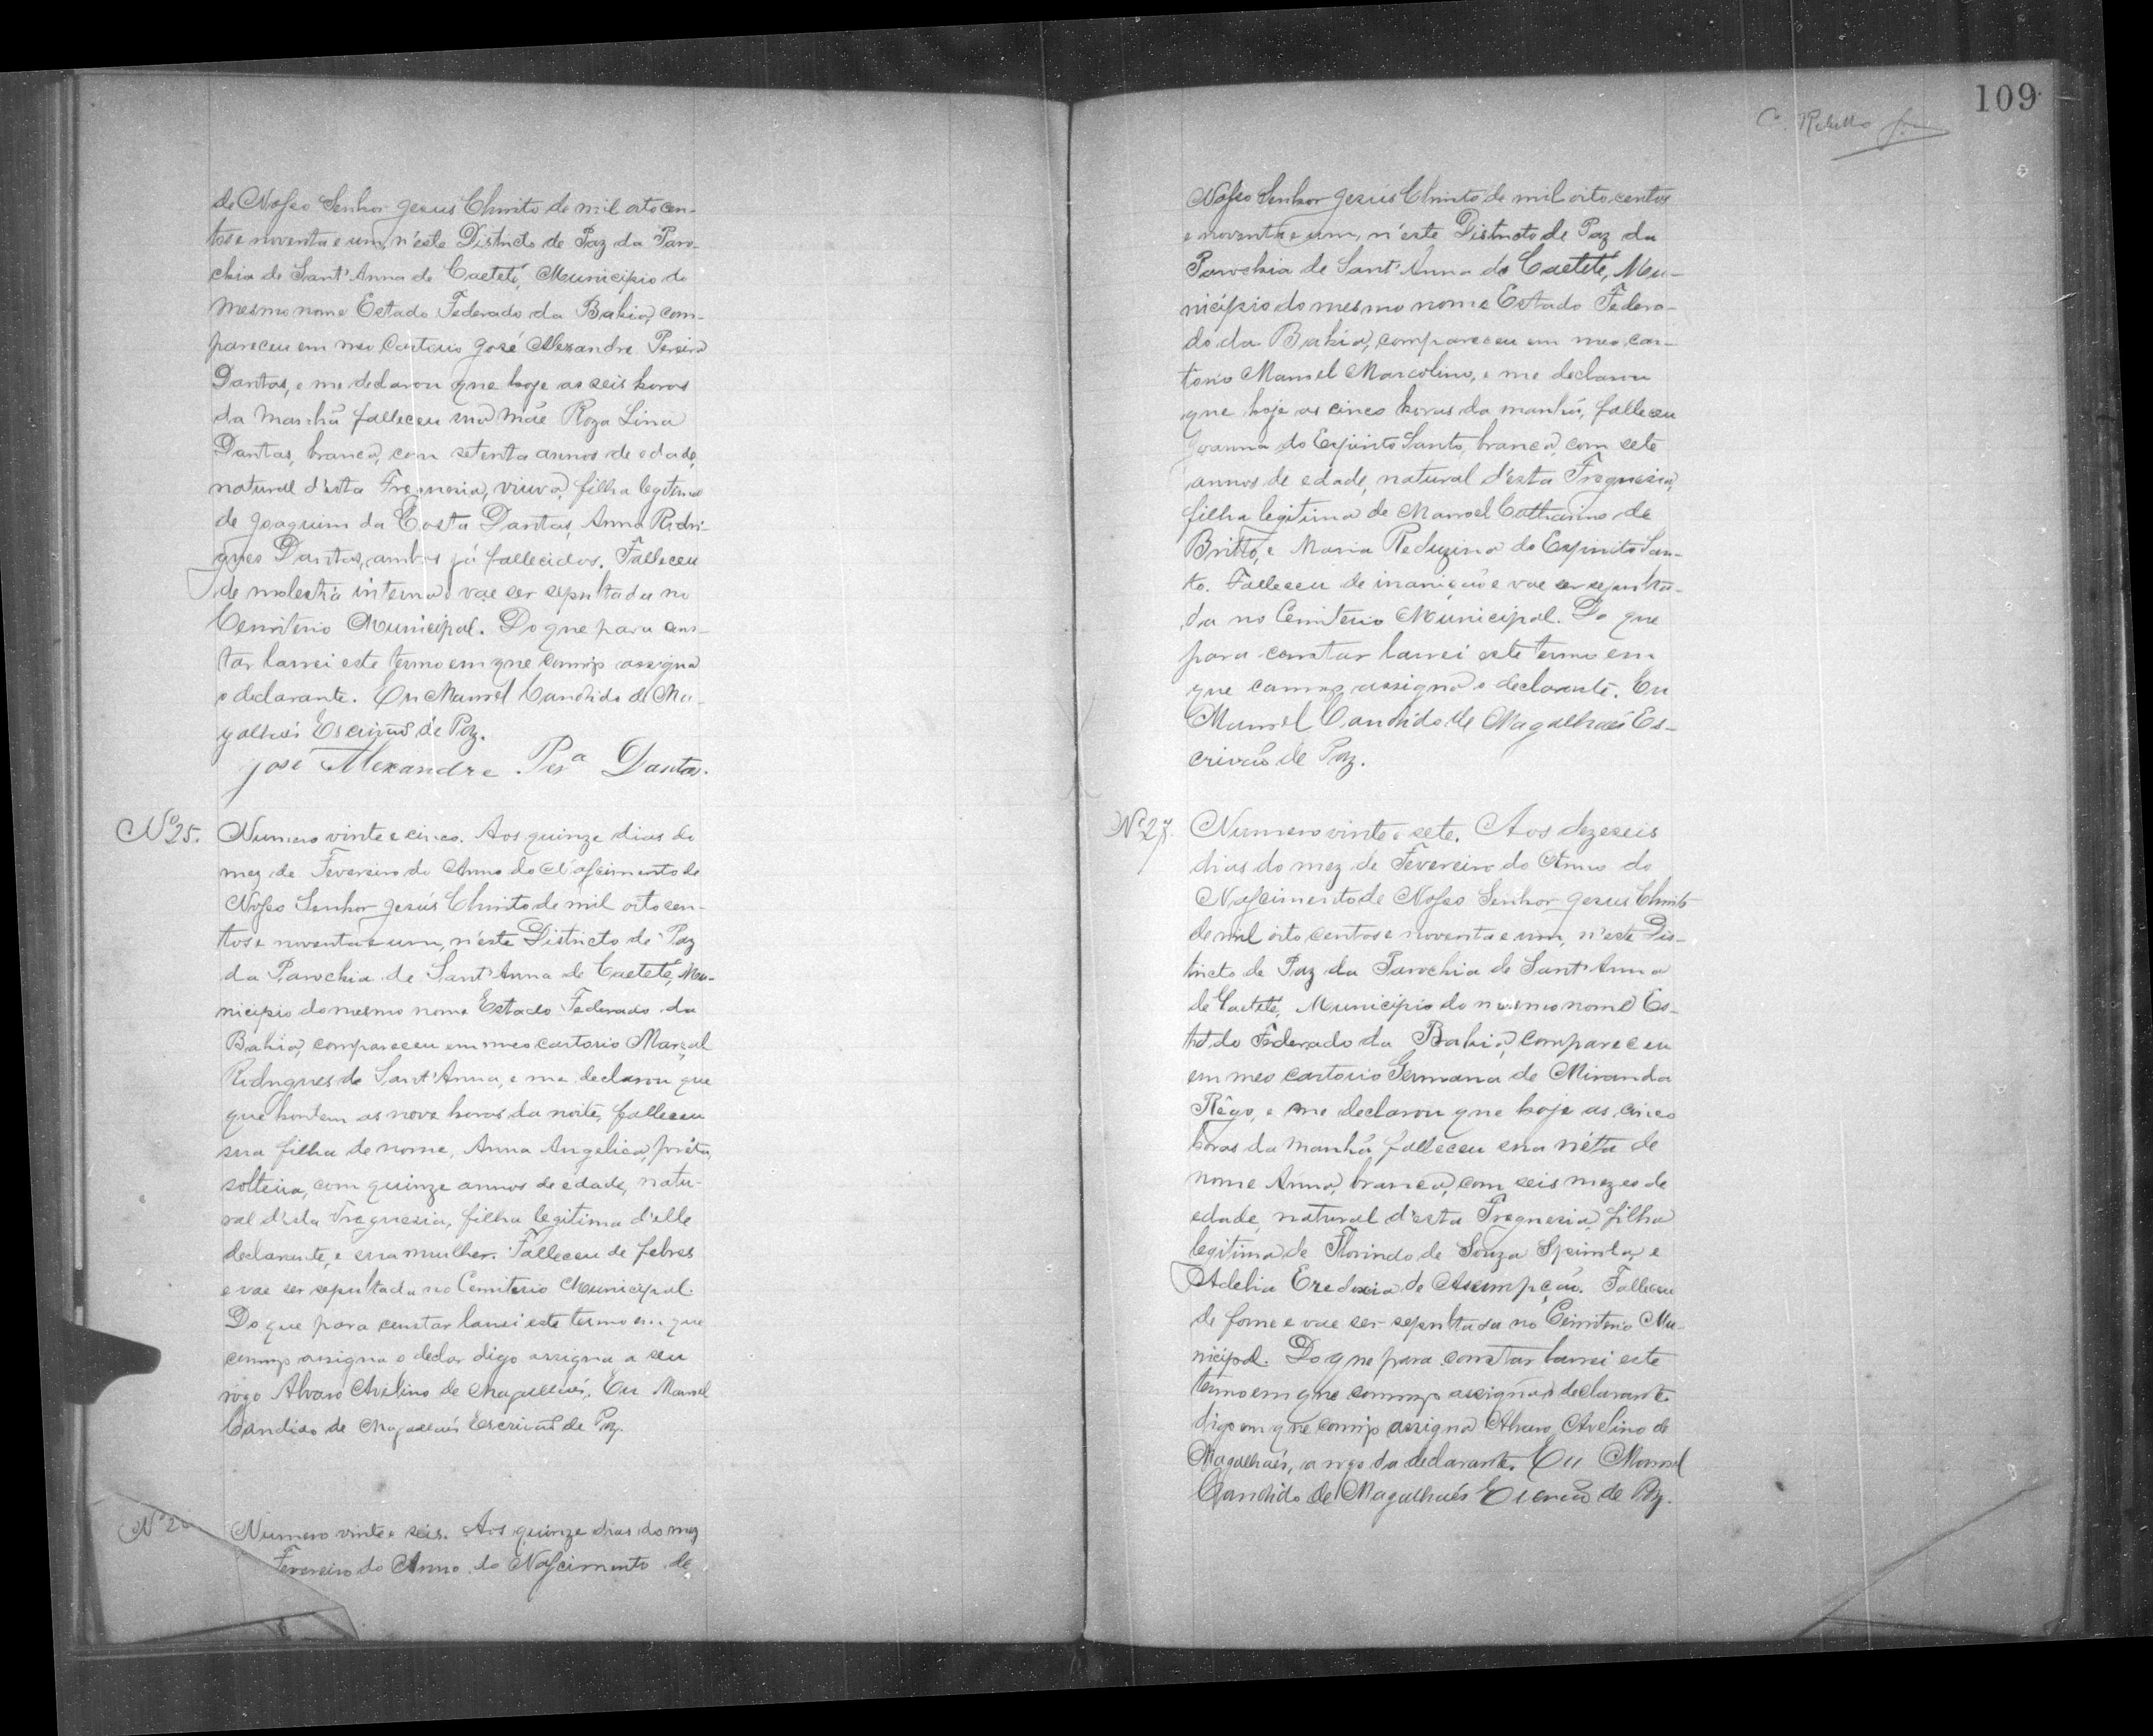 de Nosso Senhor Jesus Christo de mil oito cen-
tos e noventa e um, n'este Districto de Paz da Paro-
chia de Sant'Anna de Caeteté, Municipio do
mesmo nome Estado Federado da Bahia, com-
pareceu em meo Cartorio José Alexandre Pereira
Dantas, e me declarou que hoje as seis horas
da manhã falleceu sua mãe Roza Lina
Dantas, branca, com setenta annos de edade,
natural d'esta Freguesia, viuva, filha legitima
de Joaquim da Costa Dantas, Anna Rodri-
gues Dantas, ambos já fallecidos. Falleceu
de molestia interna e vae ser sepultada no
Cemiterio Municipal. Do que para cons-
tar lavrei este termo em que comigo assigna
o declarante. Eu Manoel Candido de Ma-
galhães Escrivão de Paz.
José Alexandre Per.a Dantas.
Nº 25.
Numero vinte e cinco. Aos quinze dias do
mez de Fevereiro do Anno do Nascimento de
Nosso Senhor Jesús Christo de mil oito cen-
tos e noventa e um, n'este Districto de Paz
da Parochia de Sant'Anna de Caeteté, Mu-
nicipio do mesmo nome Estado Federado da
Bahia, compareceu em meo cartorio Marçal
Rodrigues de Sant'Anna, e me declarou que
que hontem as nove horas da noite, falleceu
sua filha de nome, Anna Angelica, prêta,
solteira, com quinze annos de edade, natu-
ral d'esta Freguesia, filha legitima d'elle
declarante, e sua mulher. Falleceu de febres
e vae ser sepultada no Cemiterio Municipal.
Do que para constar lavrei este termo em que
comigo assigna o declar digo assigna a seu
rogo Alvaro Avelino de Magalhães. Eu Manoel
Candido de Magalhães Escrivão de Paz.
Nº 2
Numero vinte e seis. Aos quinze dias do mez
Fevereiro do Anno do Nascimento de
109
C. Rebello
Nosso Senhor Jesus Christo de mil oito centos
e noventa e um, n'este Districto de Paz da
Parochia de Sant'Anna de Caeteté, Mu-
nicipio do mesmo nome Estado Federa-
do da Bahia, compareceu em meo car-
torio Manoel Marcolino, e me declarou
que hoje as cinco horas da manhã, falleceu
Joanna do Espirito Santo, branca, com sete
annos de edade, natural d'esta Freguesia,
filha legitima de Manoel Catharino de
Britto, e Maria Reduzina do Espirito San-
to. Falleceu de inanição e vae ser sepulta-
da no Cemiterio Municipal. Do que
para constar lavrei este termo em
que comigo assigna o declarante. Eu
Manoel Candido de Magalhães Es-
crivão de Paz.
Nº 27.
Numero vinte e sete. Aos dezeseis
dias do mez de Fevereiro do Anno do
Nascimento de Nosso Senhor Jesus Christo
de mil oito centos e noventa e um, n'este Dis-
tricto de Paz da Parochia de Sant'Anna
de Caeteté, Municipio do mesmo nome Es-
tado Federado da Bahia, compareceu
em meo cartorio Germana de Miranda
Rêgo, e me declarou que hoje as cinco
horas da manhã falleceu sua nétta de
nome Anna, branca, com seis mezes de
edade, natural d'esta Freguesia, filha
legitima de Florindo de Souza Spinola, e
Adelia de Asumpção. Falleceu
de fome e vae ser sepultada no Cemiterio Mu-
nicipal. Do que para constar lavrei este
termo em que comigo assigna o declarante
digo em que comigo assigna Alvaro Avelino de
Magalhães, a rogo da declarante. Eu Manoel
Candido de Magalhães Escrivão de Paz.